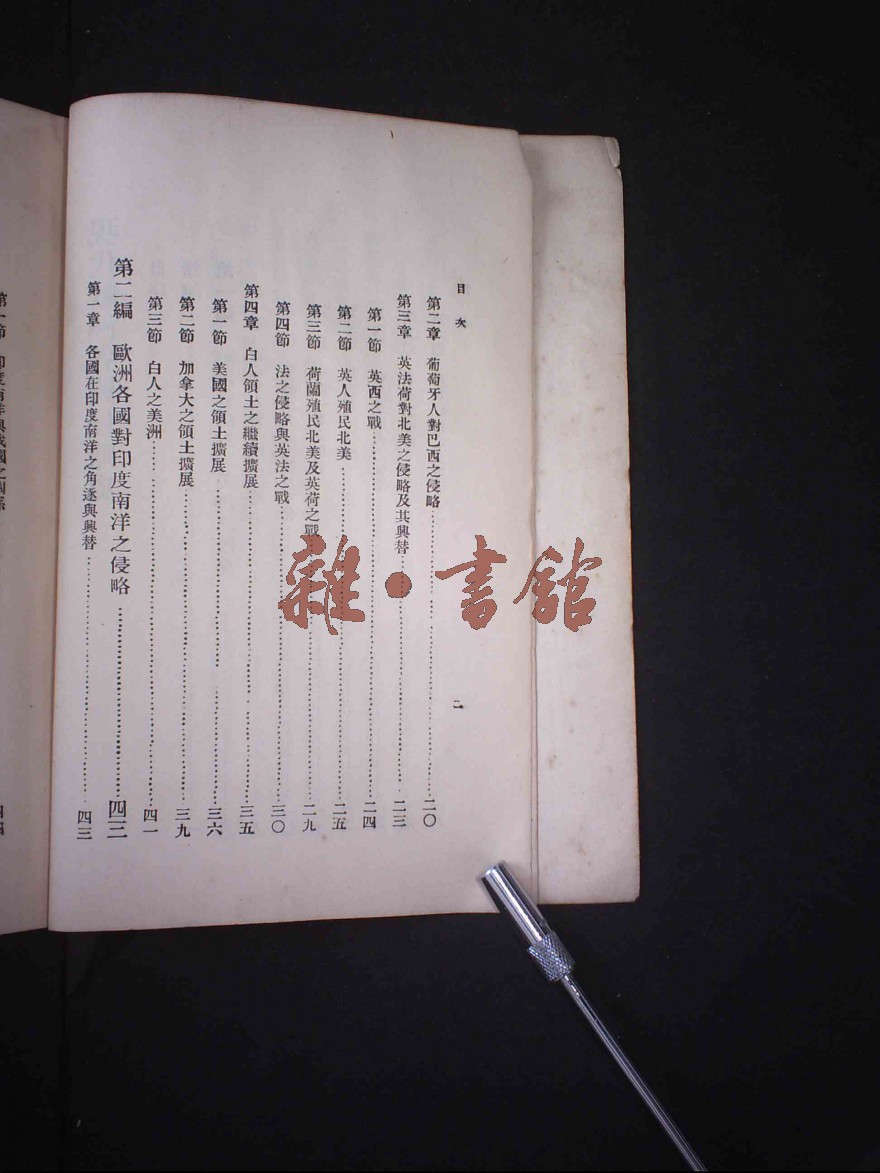 目次
二
第二章 葡萄牙人對巴西之侵略……二〇
第三章 英法荷對北美之侵略及其興替……二三
第一節 英西之戰……二四
第二節 英人殖民北美……二五
第三節 荷蘭殖民北美及英荷之戰……二九
第四節 法之侵略與英法之戰……三〇
第四章 白人領土之繼續擴展……三五
第一節 美國之領土擴展……三六
第二節 加拿大之領土擴展……三九
第三節 白人之美洲……四一
第二編 歐洲各國對印度南洋之侵略……四三
第一章 各國在印度南洋之角逐與興替……四三
第一節 印度南洋與我國之關係
四四
雜·書館